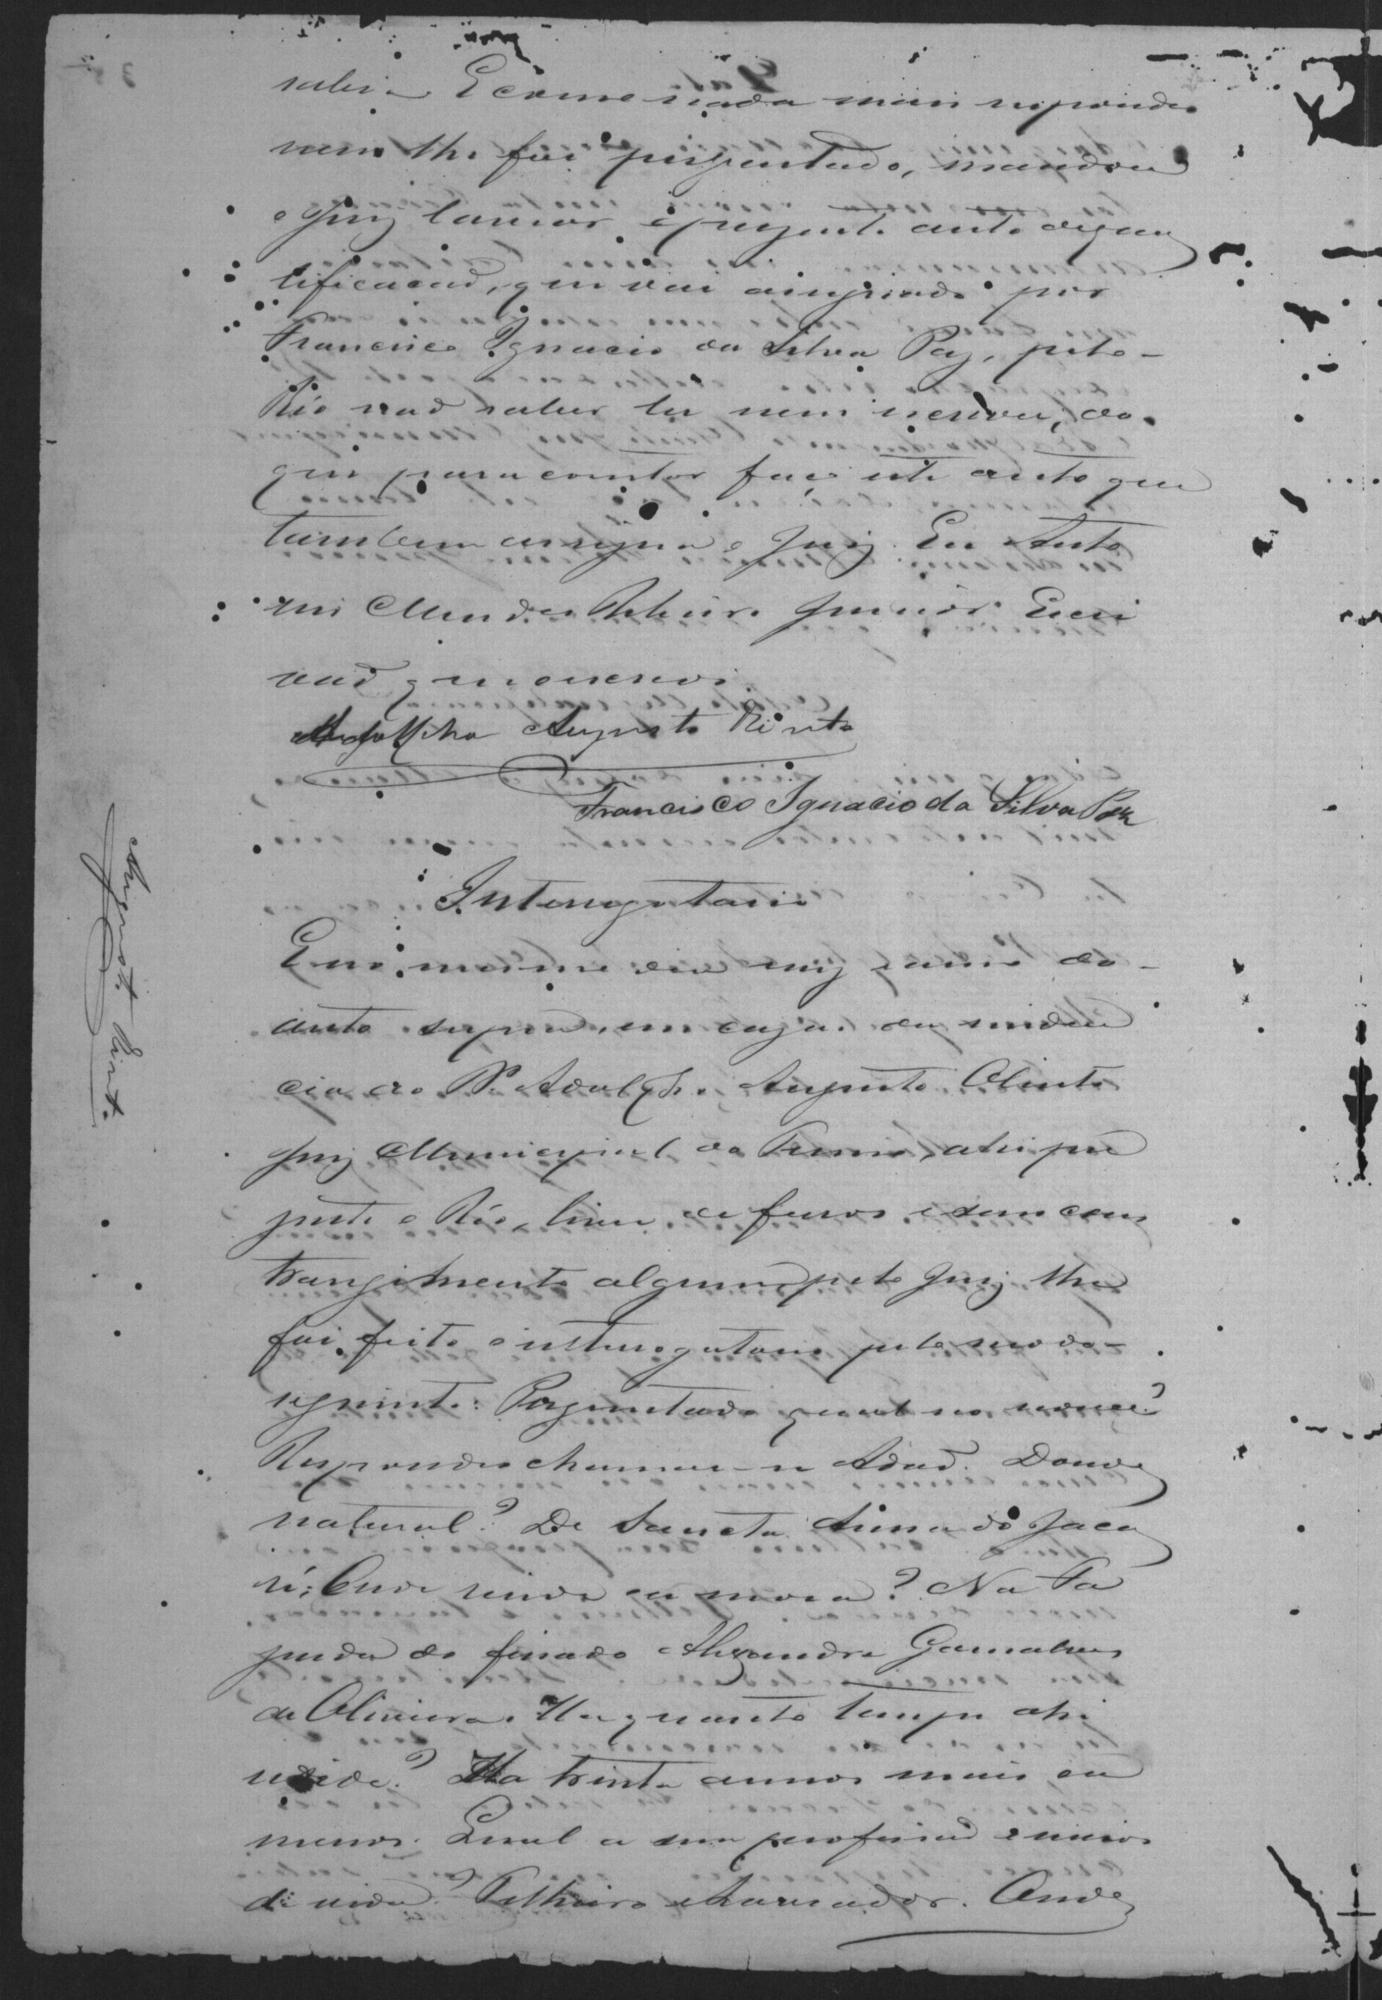 saber. E como nada mais respondeu
nem lhe foi perguntado, mandou
o Juiz lavrar o presente auto de qua
lificação, que vai assignado por
Francisco Ignacio da Silva Paz, pelo
Réo não saber ler nem escrever, do
que para constar faço este auto que
tambem assigna o Juiz. Eu Anto
nio Mendes Ribeiro Junior Escri
vão que o escrevi.
Adolpho Augusto Pinto
Francisco Ignacio da Silva Paz
Interrogatorio
Em o mesmo dia mez e anno do
auto supra, em caza da residen
cia do Dr. Adolpho Augusto Olinto
Juiz Municipal do Termo, ahi pre
zente o Réo, livre de ferros e sem cons
trangimento algum, pelo Juiz lhe
foi feito o interrogatorio pelo modo
seguinte: Perguntado qual seu nome?
Respondeo chamar-se Adão. Donde
natural? De Sancta Anna do Jaca
ré; Onde reside ou mora? Na Fa
zenda do finado Alexandre Gonsalves
de Oliveira. Ha quanto tempo ahi
reside? Ha trinta annos mais ou
menos. Qual a sua profissão e meios
de vida? Pedreiro e lavrador. Onde
Augusto Pinto